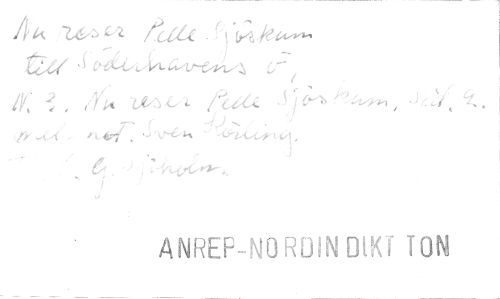 Nu reser Pelle Sjöskum
till Söderhavens ö,
N. 3. Nu reser Pelle Sjöskum,
mel. not. Sven Körling.
G. Sjöholm.
ANREP-NORDIN DIKT TON